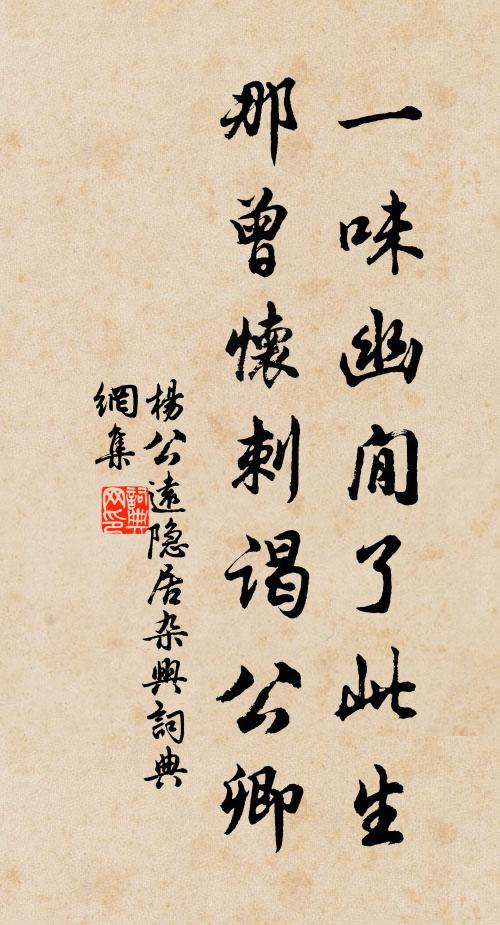 一味幽閒了此生
那曾懷刺謁公卿
楊公遠隐居杂興詞典
網集
詞典
网印